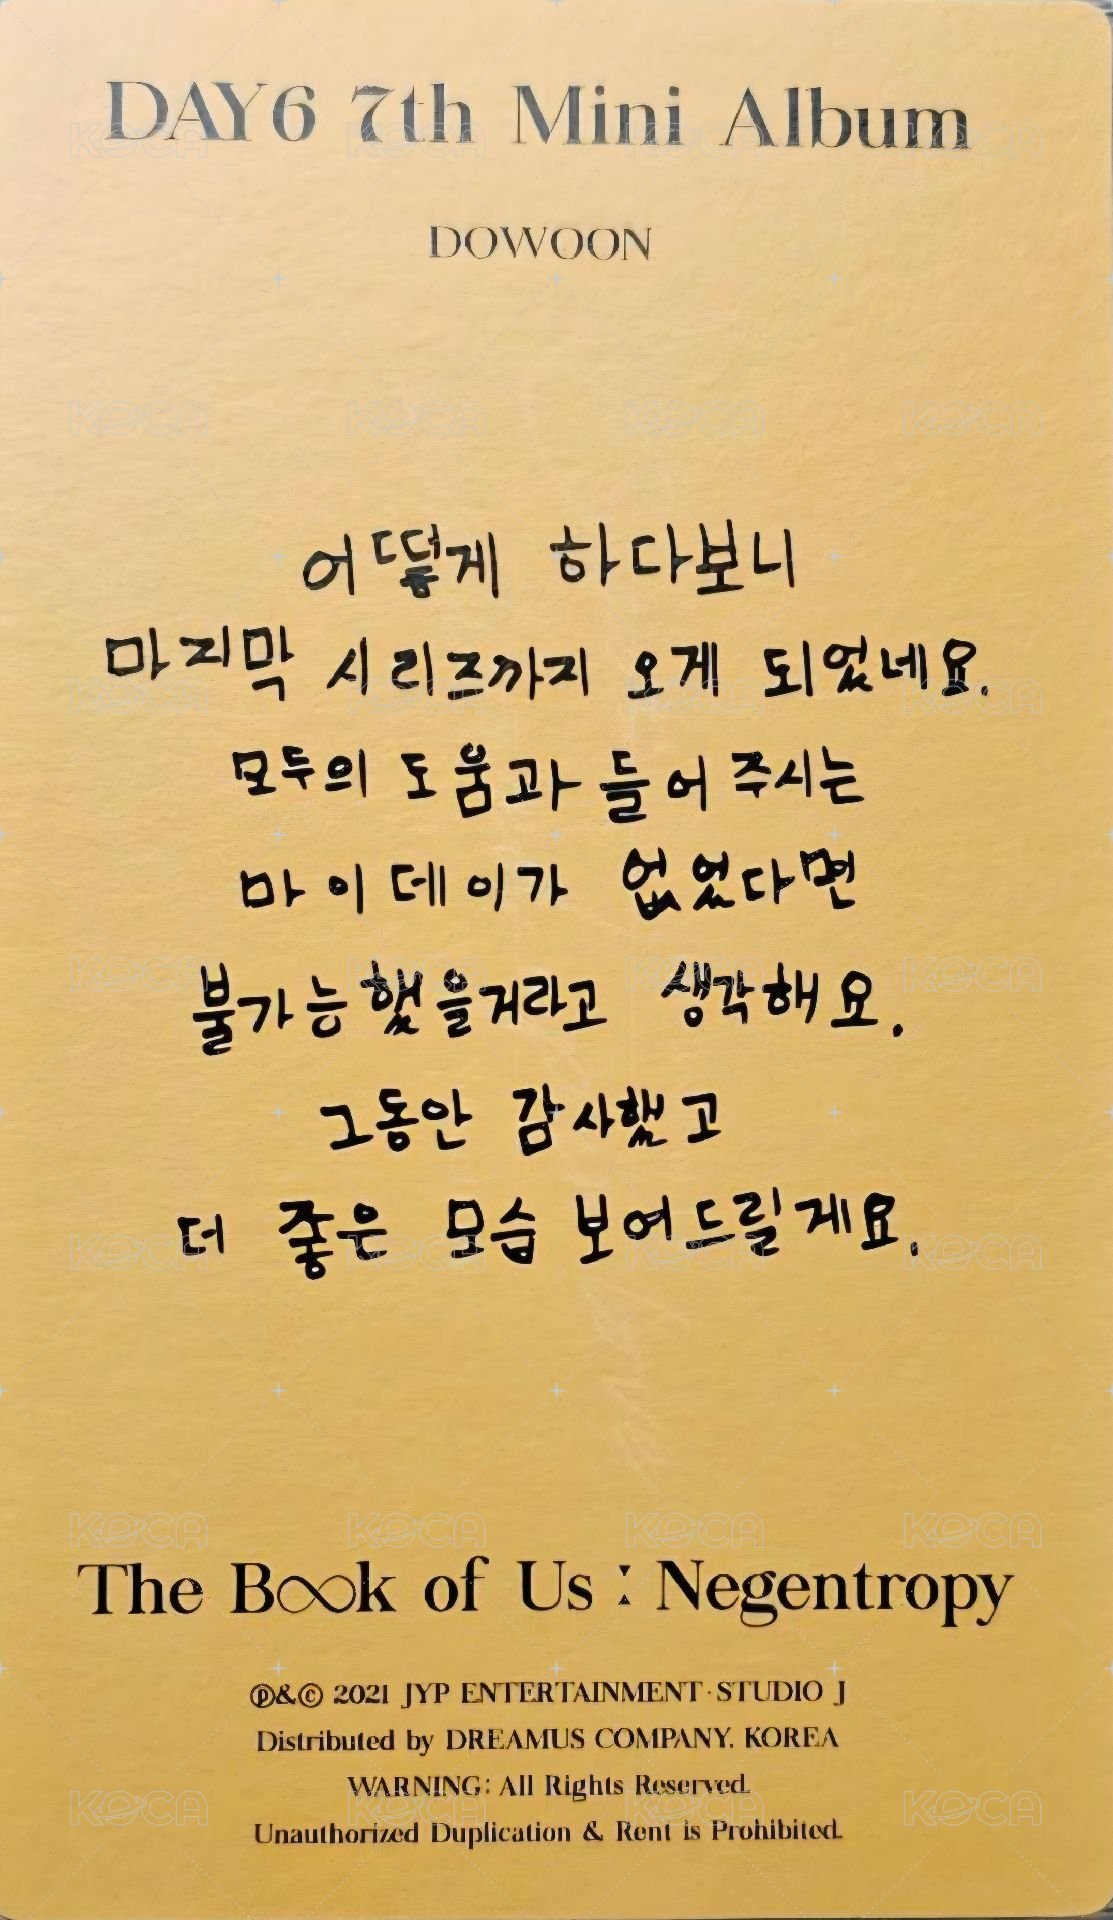 DAY6 7th Mini Album
DOWOON
어떻게 하다보니
마지막 시리즈까지 오게 되었네요.
모두의 도움과 들어 주시는
마이데이가 없었다면
불가능했을거라고 생각해요.
그동안 감사했고
더 좋은 모습 보여드릴게요.
The Book of Us : Negentropy
℗&© 2021 JYP ENTERTAINMENT·STUDIO J
Distributed by DREAMUS COMPANY. KOREA
WARNING: All Rights Reserved.
Unauthorized Duplication & Rent is Prohibited.
KOCA